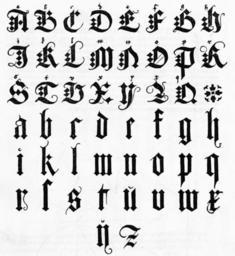 A B C D E F G H
I K L M N O P R
S T V X Y Z Q
a b c d e f g h
i k l m n o p q
r ſ s t ŭ v w x
ÿ z